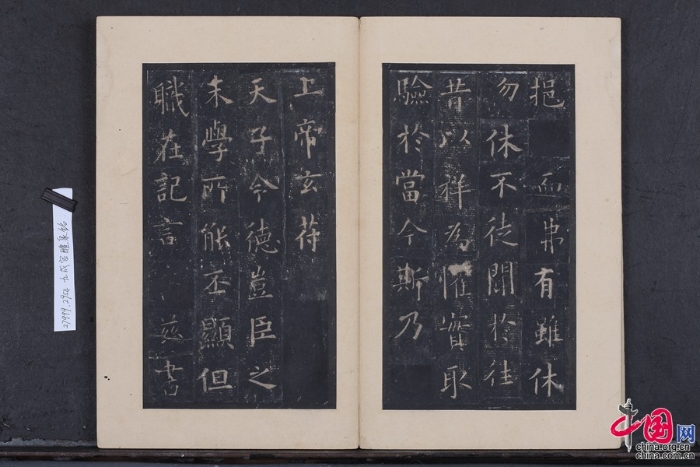 挹 而弗有雖休
勿休不徒聞於往
昔以祥為懼實取
驗於當今斯乃
上帝玄符
天子令德豈臣之
末學所能丕顯但
職在記言 茲書
中国网
china.org.cn
china.com.cn